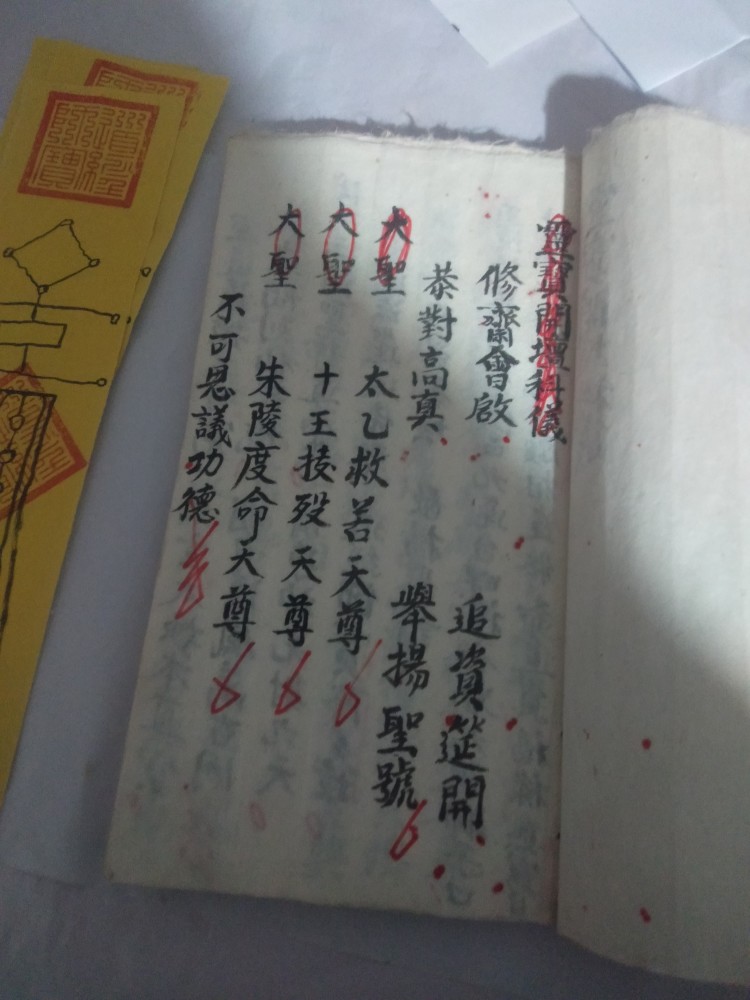 靈寶開壇科儀
修齋會啟 追資筵開
恭對高真 舉揚聖號
大聖 太乙救苦天尊
大聖 十王 天尊
大聖 朱陵度命天尊
不可思議功德
道經師寶